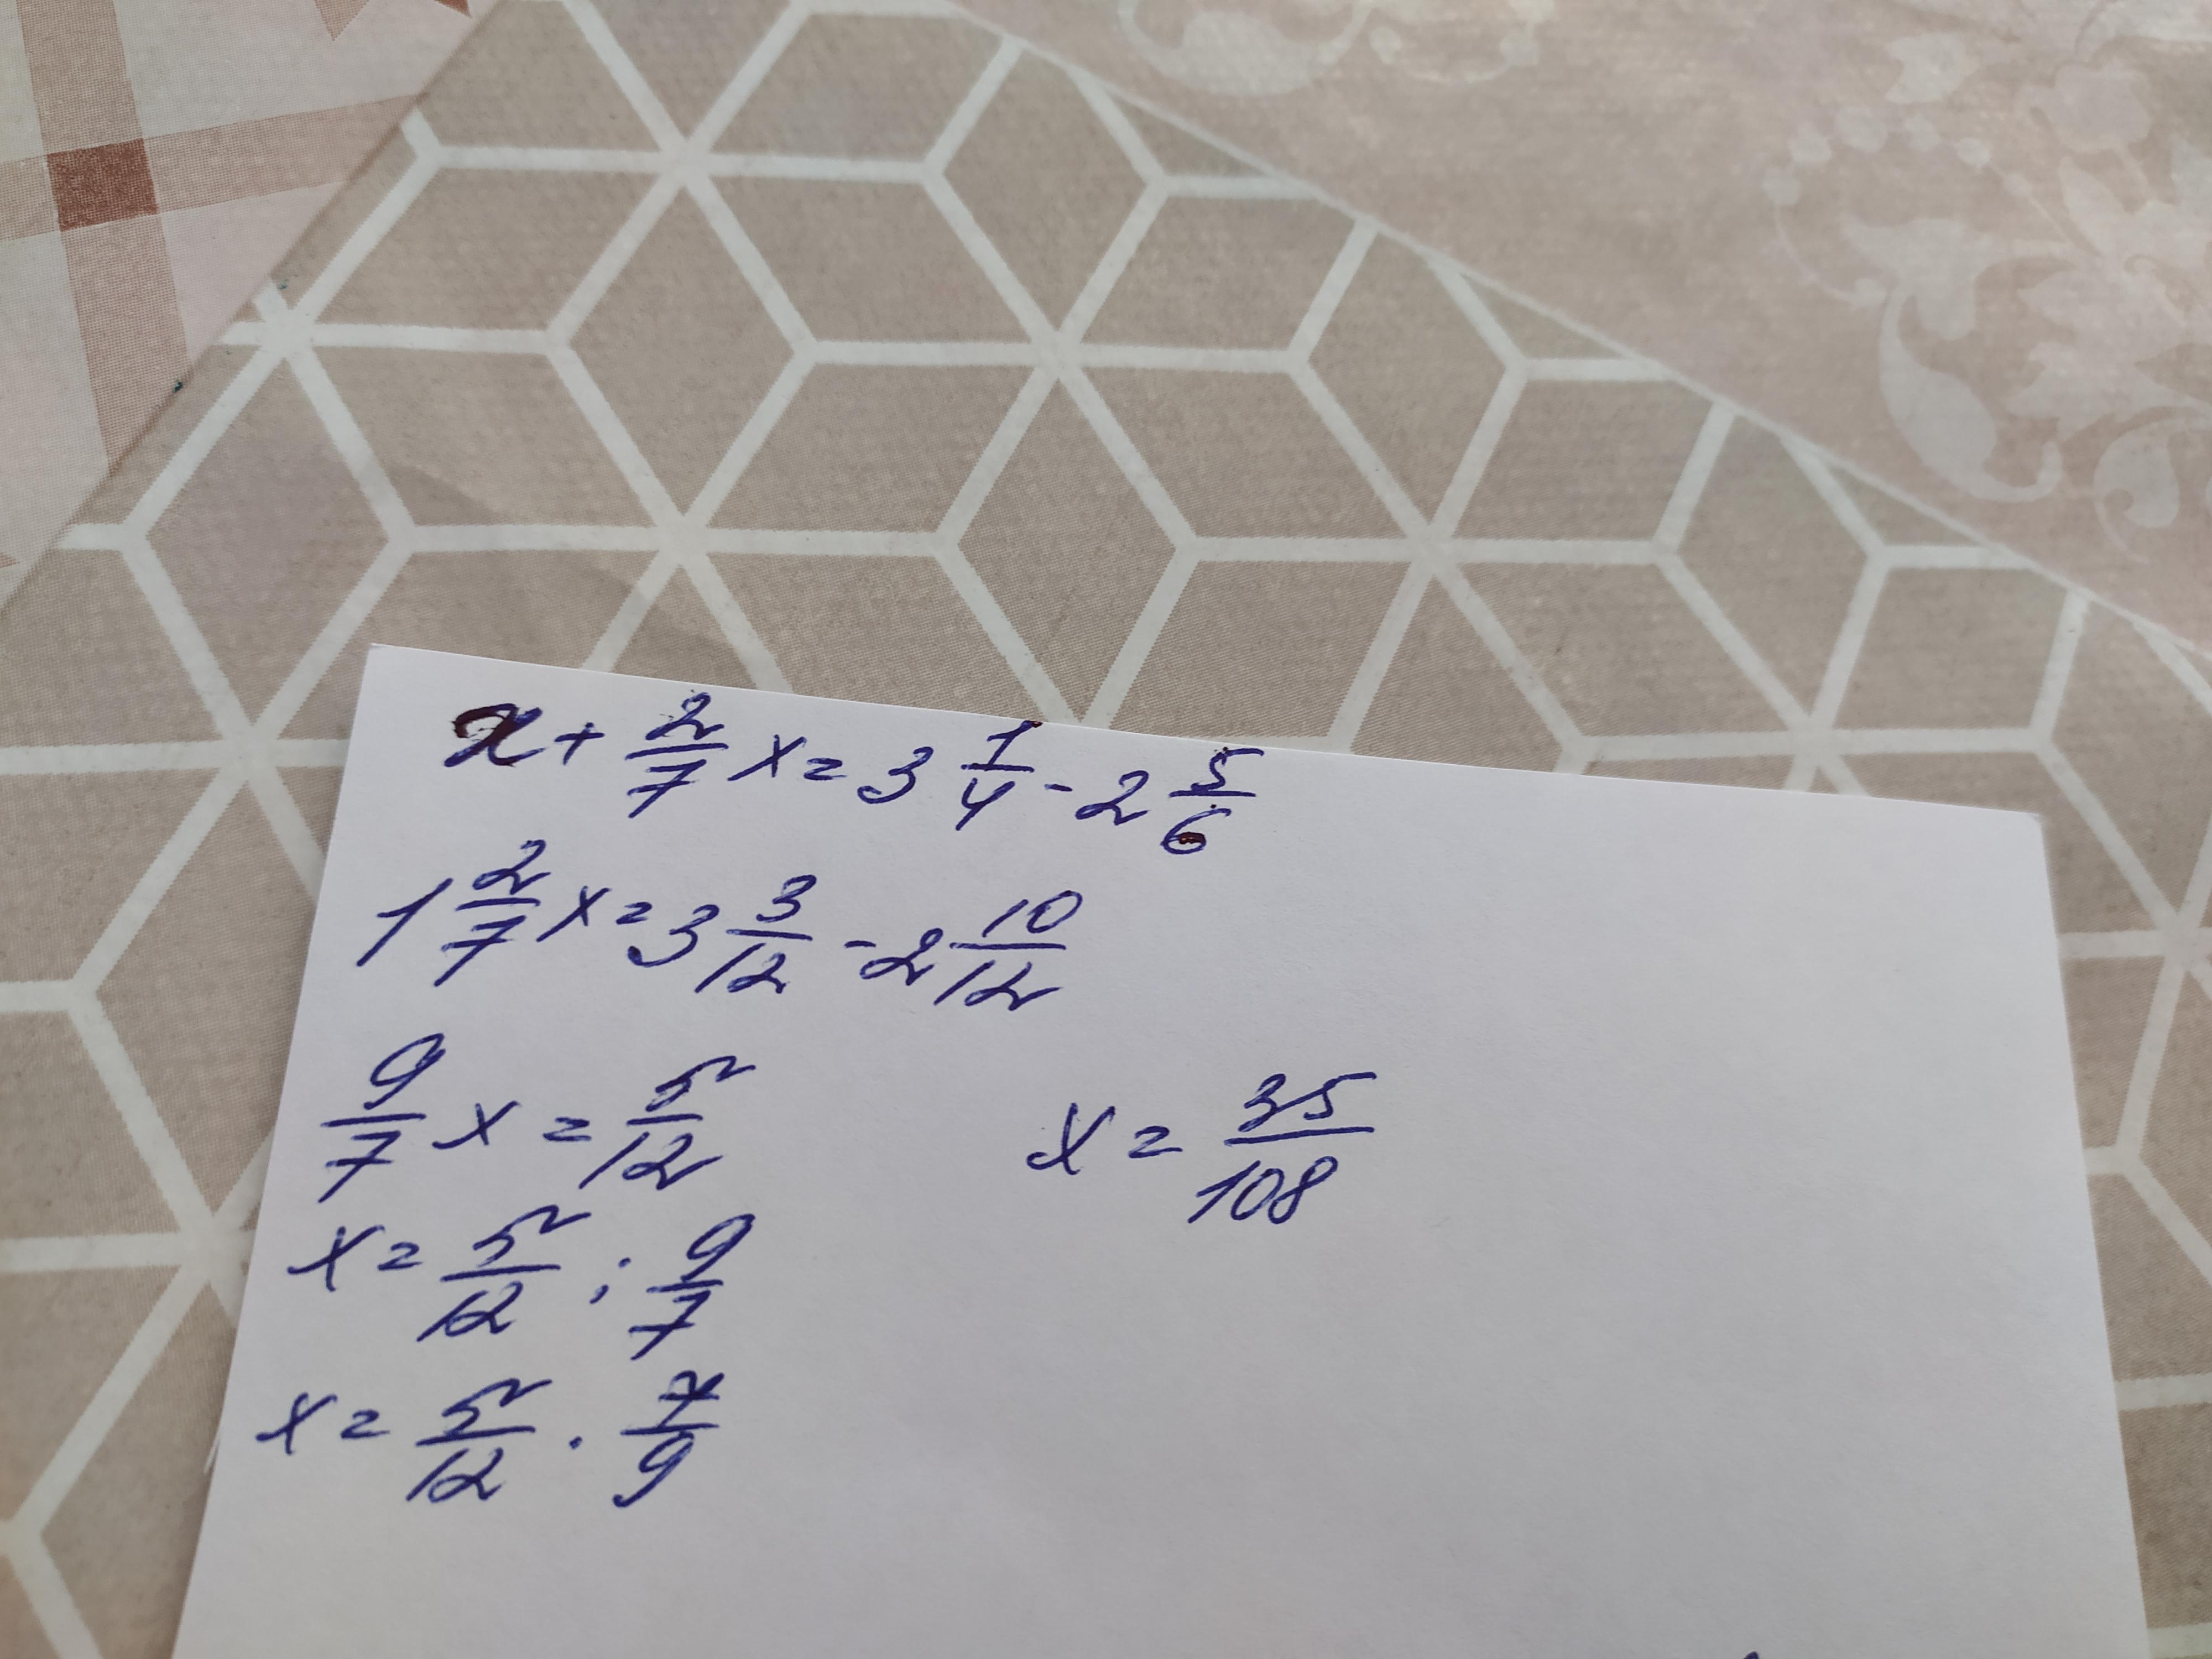 x + 2/7 x = 3 1/4 - 2 5/6
1 2/7 x = 3 3/12 - 2 10/12
9/7 x = 5/12
x = 5/12 : 9/7
x = 5/12 · 7/9
x = 35/108